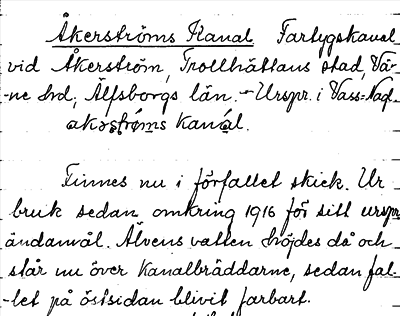 Åkerströms Kanal Fartygskanal
vid Åkerström, Trollhättans stad, Vä-
-ne hd, Älfsborgs län. - Urspr. i Vass:Naql
akərströ̀ms kanál.
Finnes nu i förfallet skick. Ur
bruk sedan omkring 1916 för sitt urspr
ändamål. Älvens vatten höjdes då och
står nu över kanalbräddarne, sedan fal-
-let på östsidan blivit farbart.